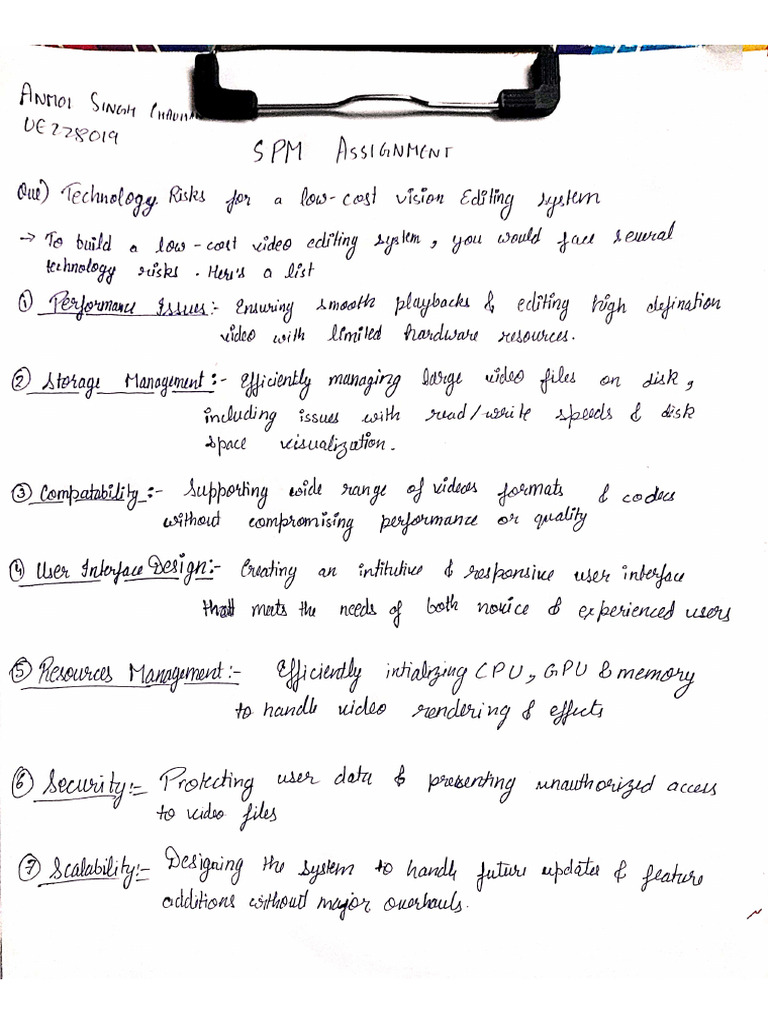 ANMOL SINGH CHAUHA
UE228019
SPM ASSIGNMENT
Que) Technology Risks for a low-cost vision Editing system
→ To build a low-cost video editing system, you would face several
technology risks. Here's a list
① Performance Issues:- Ensuring smooth playbacks & editing high defination
video with limited hardware resources.
② Storage Management:- Efficiently managing large video files on disk,
including issues with read/write speeds & disk
space visualization.
③ Compatability:- Supporting wide range of videos formats & codecs
without compromising performance or quality
④ User Interface Design:- Creating an intitutive & responsive user interface
that meets the needs of both novice & experienced users
⑤ Resources Management:- Efficiently intializing CPU, GPU & memory
to handle video rendering & effects
⑥ Security:- Protecting user data & presenting unauthorized access
to video files
⑦ Scalability:- Designing the system to handle future updates & feature
additions without major overhauls.